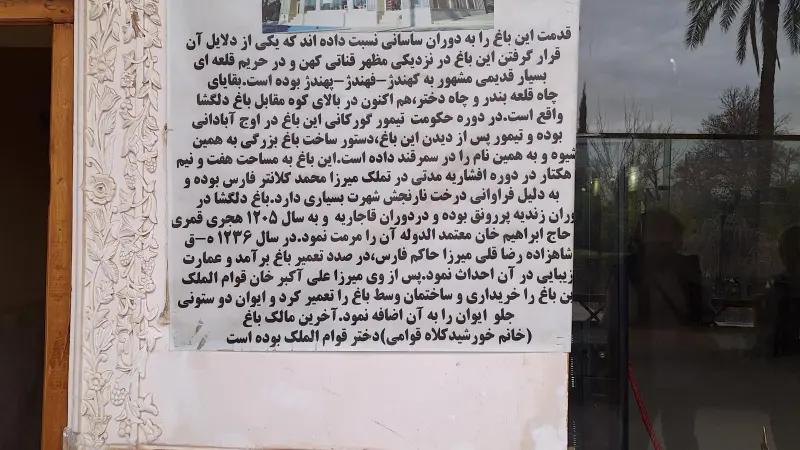 قدمت این باغ را به دوران ساسانی نسبت داده اند که یکی از دلایل آن
قرار گرفتن این باغ در نزدیکی مظهر قناتی کهن و در حریم قلعه ای
بسیار قدیمی مشهور به کهندژ-فهندژ-پهندژ بوده است.بقایای
چاه قلعه بندر و چاه دختر،هم اکنون در بالای کوه مقابل باغ دلگشا
واقع است.در دوره حکومت تیمور گورکانی این باغ در اوج آبادانی
بوده و تیمور پس از دیدن این باغ،دستور ساخت باغ بزرگی به همین
شیوه و به همین نام را در سمرقند داده است.این باغ به مساحت هفت و نیم
هکتار در دوره افشاریه مدتی در تملک میرزا محمد کلانتر فارس بوده و
به دلیل فراوانی درخت نارنجش شهرت بسیاری دارد.باغ دلگشا در
وران زندیه پررونق بوده و دردوران قاجاریه و به سال ۱۲۰۵ هجری قمری
حاج ابراهیم خان معتمد الدوله آن را مرمت نمود.در سال ۱۲۳۶ ه-ق
شاهزاده رضا قلی میرزا حاکم فارس،در صدد تعمیر باغ برآمد و عمارت
زیبایی در آن احداث نمود.پس از وی میرزا علی آکبر خان قوام الملک
ین باغ را خریداری و ساختمان وسط باغ را تعمیر کرد و ایوان دو ستونی
جلو ایوان را به آن اضافه نمود.آخرین مالک باغ
(خانم خورشیدکلاه قوامی)دختر قوام الملک بوده است